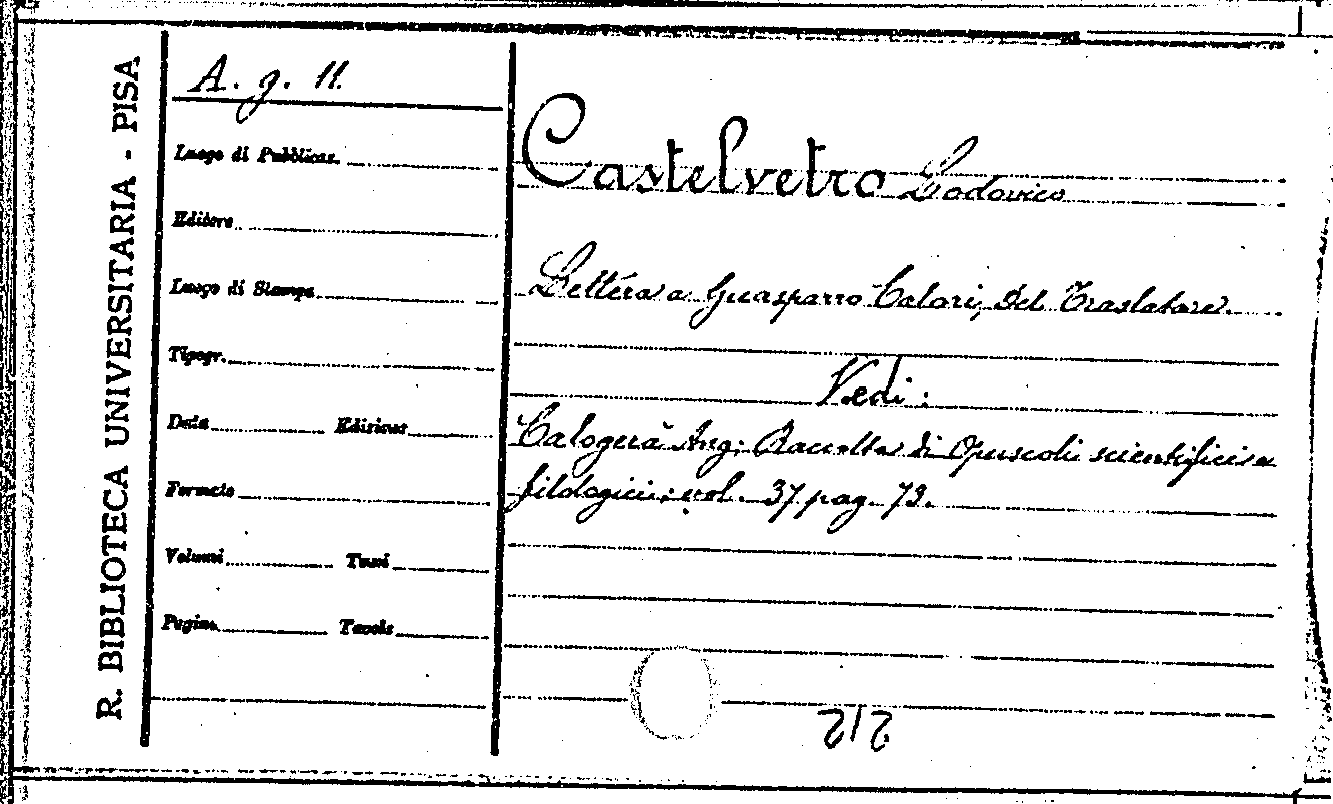 R. BIBLIOTECA UNIVERSITARIA - PISA
A. g. 11.
Luogo di Pubblicaz.
Editore
Luogo di Stampa
Tipogr.
Data Edizione
Formato
Volumi Tomi
Pagine Tavole
Castelvetro Lodovico
Lettera a Guasparro Calori, del Traslatare.
Vedi:
Calogerà Ang: Raccolta di Opuscoli scientifici e
filologici: vol. 37 pag. 73.
212